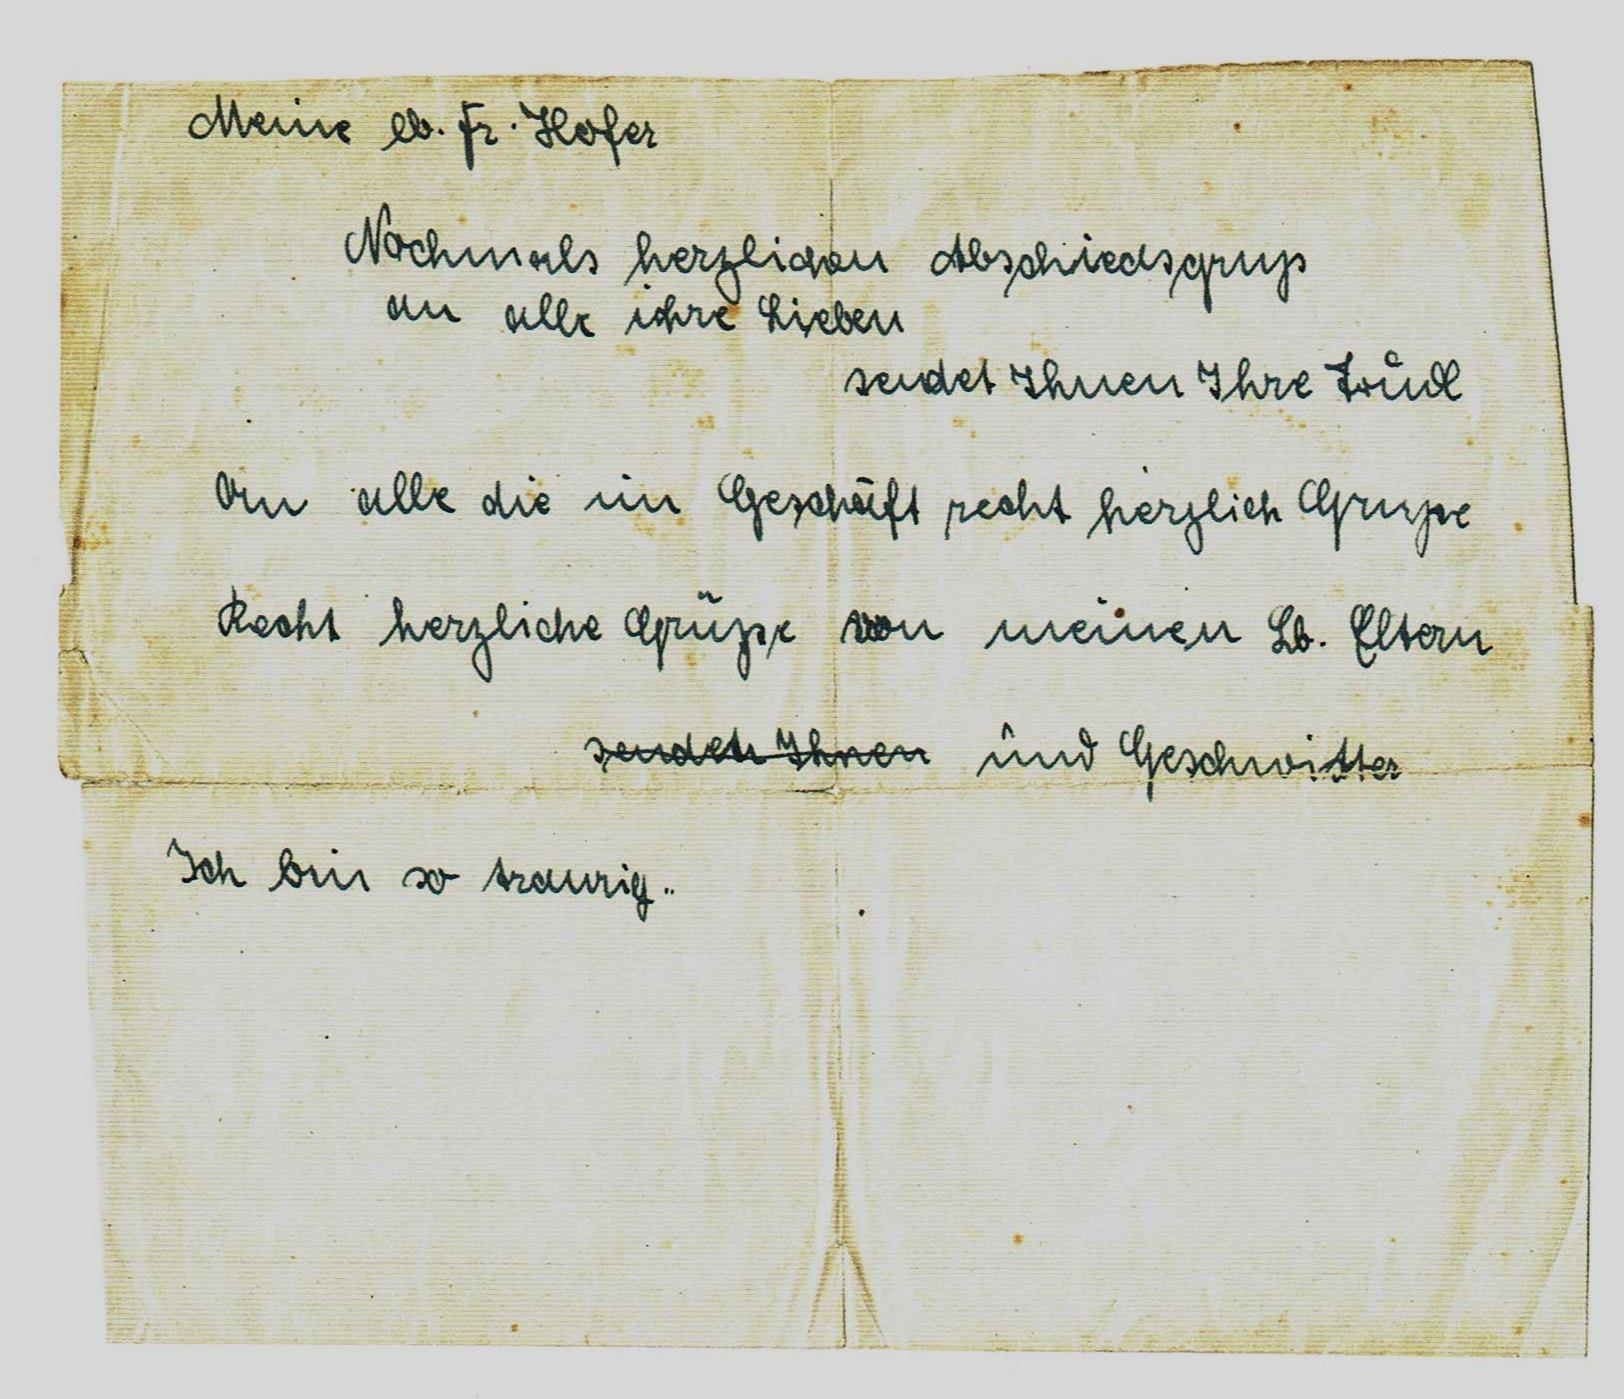 Meine lb. Fr. Hofer
Nochmals herzlichen Abschiedsgruß
an alle ihre Lieben
sendet Ihnen Ihre Trŭdl
An alle die im Geschäft recht herzlich Grusse
Recht herzliche Grüsse von meinen Lb. Eltern
senden Ihnen ŭnd Geschwitter
Ich bin so traurig..